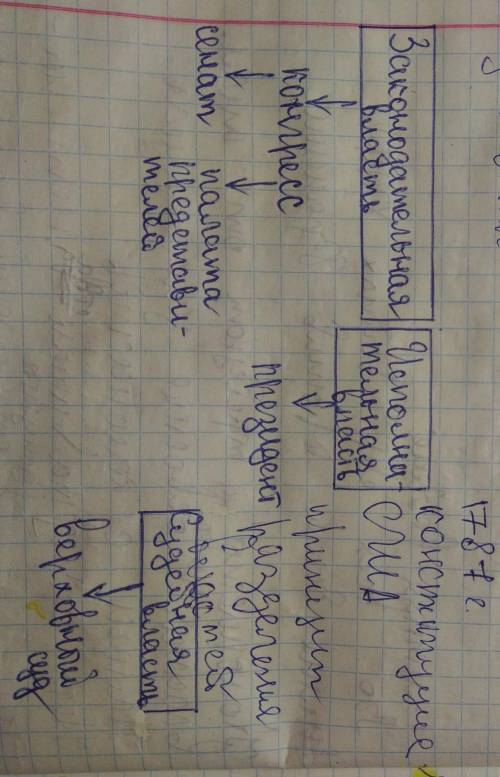 1787 г.
конституция
США
принцип
разделения
властей
Законодательная
власть
конгресс
сенат
палата
представи-
телей
Исполни-
тельная
власть
президент
Судебная
власть
верховный
суд